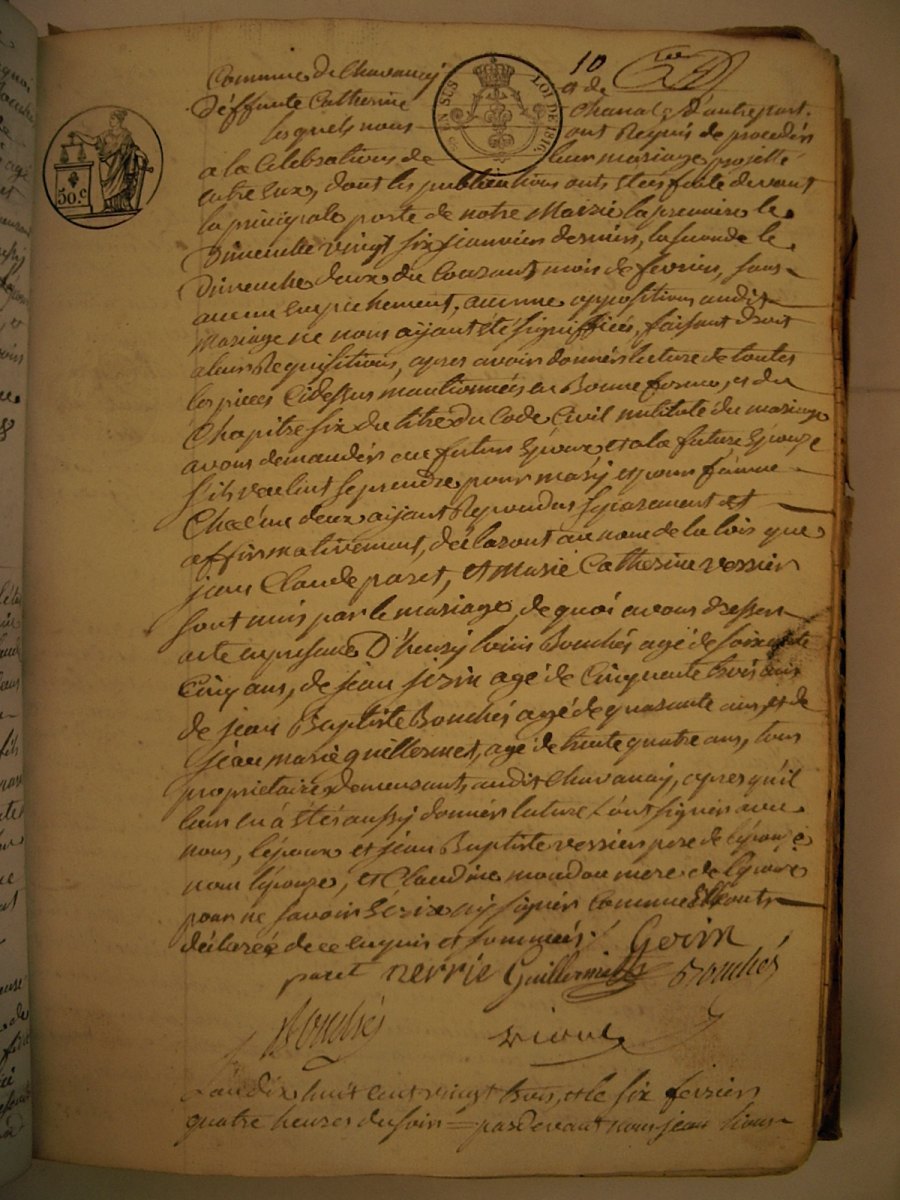 10
Commune de Chavanay et de
Déffunte Catherine Chanal, d'autre part.
lesquels nous ont Requis de procedér
a la Celebration de leur mariage projetté
entre eux, dont les publications onts étés faite devant
la principale porte de notre Mairie la premiere le
Dimenche vingt six janvier dernier, la seconde le
Dimenche deux du Courant mois de fevrier, sans
aucun empechement, aucune opposition audit
Mariage ne nous aÿant été signiffiéé, faisant droit
a leur Requisition, apres avoir donnér lecture de toutes
les pieces Cidessus mantionnéés en Bonne forme, et du
Chapitre six du titre du Code Civil intitulé du mariage
avons demandér au futur Epoux et a la future Epouze
s'ils veulent se prendre pour marÿ et pour fámme
Chacún deux aÿant Repondus separement et
affirmativement, declaront au nom de la lois que
jean Claude paret, et marie Catherine verrier
sont unis par le mariage, de quoi avons dresser
acte en presance D'henrÿ louis Bouchér agé de soixante
Cinq ans, de jean jerin agé de Cinquante trois ans
de jean Baptiste Bouchér agé de quarante ans, et de
jean marie guillermet, agé de trente quatre ans, tous
proprietaire demeurant audit Chavanaÿ, apres qu'il
leur en á étés aussÿ donnér lecture L'ont signér avec
nous, lépoux et jean Baptiste verrier pere de lépouze
non lépouze, et Claudine moudou mere de lépoux
pour ne savoir Écrire nÿ signér Comme Ellont
declaréé de ce enquis et sommeés ./. Gerin
paret verrie Guillermet Bouchér
Bouchér viout
L'an dix huit cent vingt trois, et le six fevrier
quatre heures du soir = pardevant nous jean
50.C
EN SUS LOI DE 1816.